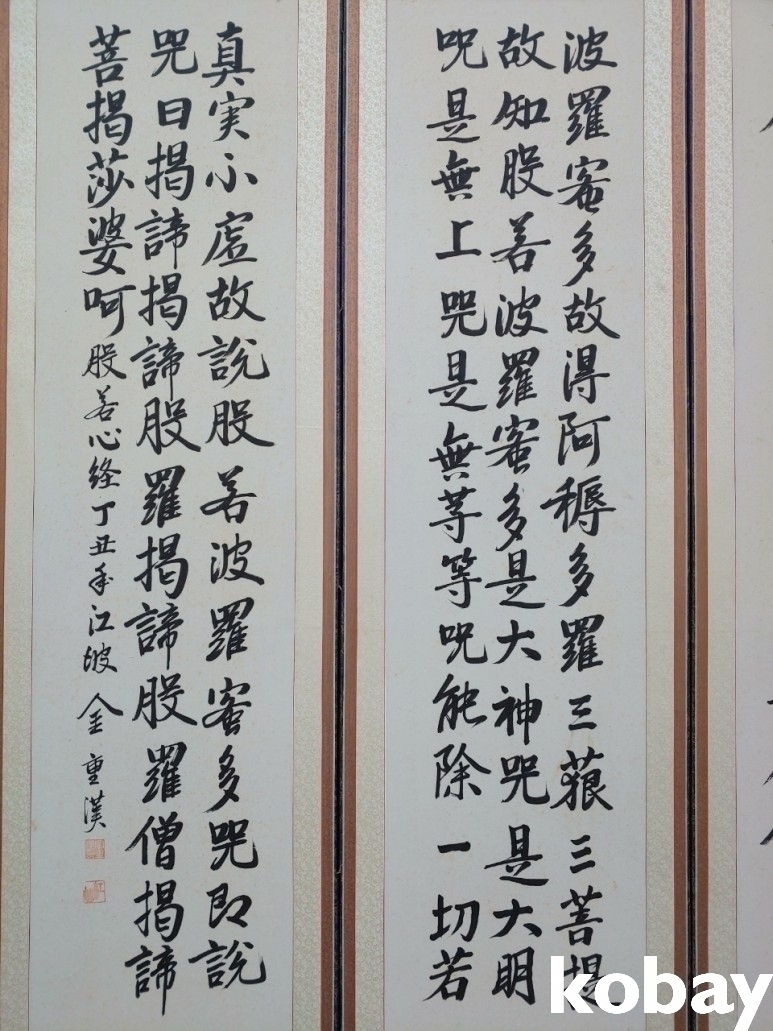 波羅蜜多故得阿耨多羅三藐三菩提
故知般若波羅蜜多是大神咒是大明
呪是無上咒是無等等呪能除一切若
真実不虛故說般若波羅蜜多咒即說
咒曰揭諦揭諦般羅揭諦般羅僧揭諦
菩揭莎婆呵 般若心経丁丑年江坡 金重漢
kobay